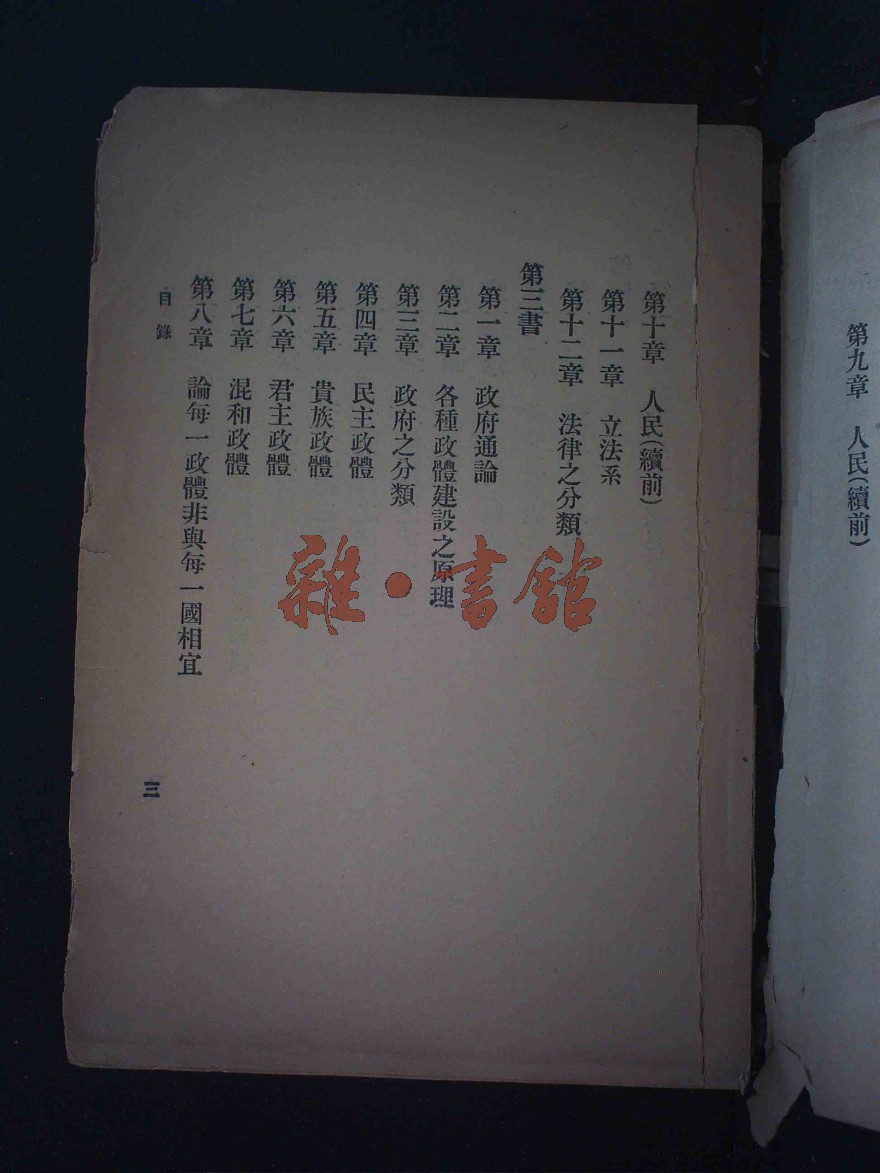 第九章　人民（續前）
第十章　人民（續前）
第十一章　立法系
第十二章　法律之分類
第三書
第一章　政府通論
第二章　各種政體建設之原理
第三章　政府之分類
第四章　民主政體
第五章　貴族政體
第六章　君主政體
第七章　混和政體
第八章　論每一政體非與每一國相宜
目錄
三
雜·書館